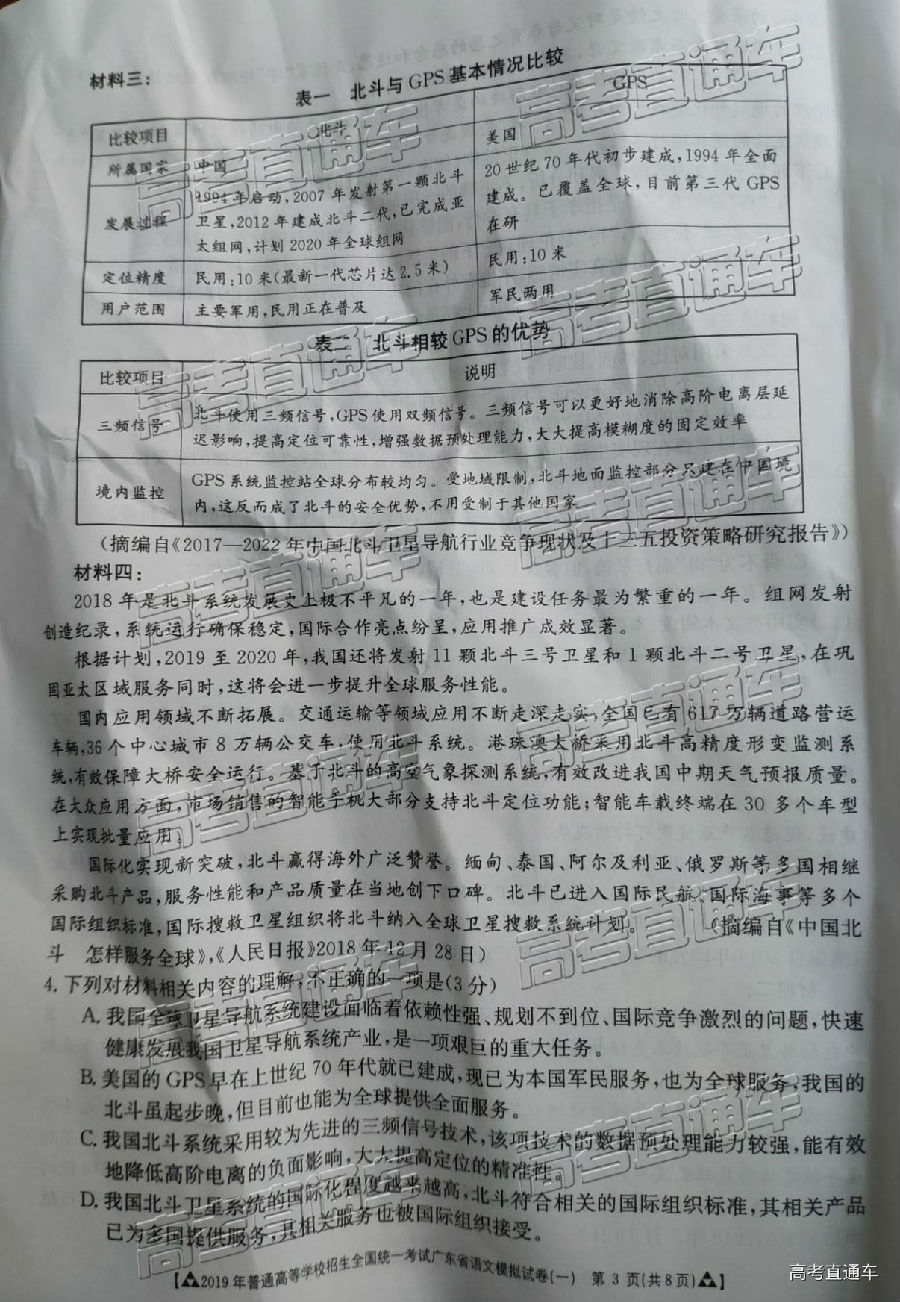 材料三:
表一 北斗与GPS基本情况比较
比较项目 北斗 GPS
所属国家 中国 美国
发展过程 1994年启动,2007年发射第一颗北斗卫星,2012年建成北斗二代,已完成亚太组网,计划2020年全球组网 20世纪70年代初步建成,1994年全面建成。已覆盖全球,目前第三代GPS在研
定位精度 民用:10米(最新一代芯片达2.5米) 民用:10米
用户范围 主要军用,民用正在普及 军民两用
表二 北斗相较GPS的优势
比较项目 说明
三频信号 北斗使用三频信号,GPS使用双频信号。三频信号可以更好地消除高阶电离层延
迟影响,提高定位可靠性,增强数据预处理能力,大大提高模糊度的固定效率
境内监控 GPS系统监控站全球分布较均匀。受地域限制,北斗地面监控部分只建在中国境
内,这反而成了北斗的安全优势,不用受制于其他国家
(摘编自《2017—2022年中国北斗卫星导航行业竞争现状及十三五投资策略研究报告》)
材料四:
2018年是北斗系统发展史上极不平凡的一年,也是建设任务最为繁重的一年。组网发射
创造纪录,系统运行确保稳定,国际合作亮点纷呈,应用推广成效显著。
根据计划,2019至2020年,我国还将发射11颗北斗三号卫星和1颗北斗二号卫星,在巩
固亚太区域服务同时,这将会进一步提升全球服务性能。
国内应用领域不断拓展。交通运输等领域应用不断走深走实,全国已有617万辆道路营运
车辆,36个中心城市8万辆公交车,使用北斗系统。港珠澳大桥采用北斗高精度形变监测系
统,有效保障大桥安全运行。基于北斗的高空气象探测系统,有效改进我国中期天气预报质量。
在大众应用方面,市场销售的智能手机大部分支持北斗定位功能;智能车载终端在30多个车型
上实现批量应用。
国际化实现新突破,北斗赢得海外广泛赞誉。缅甸、泰国、阿尔及利亚、俄罗斯等多国相继
采购北斗产品,服务性能和产品质量在当地创下口碑。北斗已进入国际民航、国际海事等多个
国际组织标准,国际搜救卫星组织将北斗纳入全球卫星搜救系统计划。 (摘编自《中国北
斗 怎样服务全球》,《人民日报》2018年12月28日)
4.下列对材料相关内容的理解,不正确的一项是(3分)
A.我国全球卫星导航系统建设面临着依赖性强、规划不到位、国际竞争激烈的问题,快速
健康发展我国卫星导航系统产业,是一项艰巨的重大任务。
B.美国的GPS早在上世纪70年代就已建成,现已为本国军民服务,也为全球服务;我国的
北斗虽起步晚,但目前也能为全球提供全面服务。
C.我国北斗系统采用较为先进的三频信号技术,该项技术的数据预处理能力较强,能有效
地降低高阶电离的负面影响,大大提高定位的精准性。
D.我国北斗卫星系统的国际化程度越来越高,北斗符合相关的国际组织标准,其相关产品
已为多国提供服务,其相关服务也被国际组织接受。
【2019年普通高等学校招生全国统一考试广东省语文模拟试卷(一) 第3页(共8页)】
高考直通车